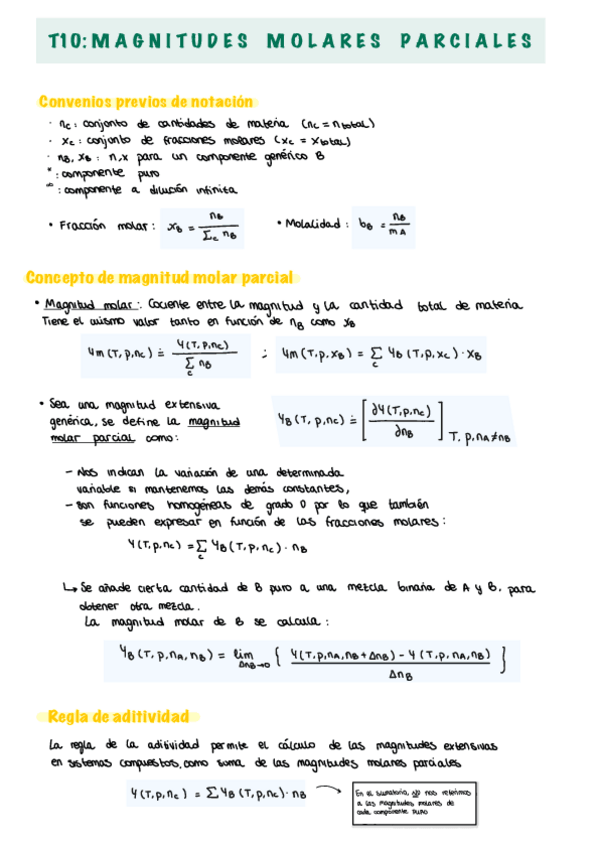 T10: MAGNITUDES MOLARES PARCIALES
Convenios previos de notación
· nc: conjunto de cantidades de materia (nc = ntotal)
· xc: conjunto de fracciones molares (xc = xtotal)
· nB, xB: n,x para un componente genérico B
*: componente puro
∞: componente a dilución infinita
• Fracción molar: xB = nB / Σc nB • Molalidad: bB = nB / mA
Concepto de magnitud molar parcial
• Magnitud molar: Cociente entre la magnitud y la cantidad total de materia
Tiene el mismo valor tanto en función de nB como xB
Ym (T, p, nc) ≐ Y(T, p, nc) / Σc nB ; Ym (T, p, xB) = Σc YB (T, p, xc) · xB
• Sea una magnitud extensiva
genérica, se define la magnitud
molar parcial como:
YB (T, p, nc) ≐ [∂Y(T, p, nc) / ∂nB] T, p, nA≠nB
– Nos indican la variación de una determinada
variable si mantenemos las demás constantes,
– Son funciones homogéneas de grado 0 por lo que también
se pueden expresar en función de las fracciones molares:
Y(T, p, nc) = Σc YB (T, p, nc) · nB
↳ Se añade cierta cantidad de B puro a una mezcla binaria de A y B, para
obtener otra mezcla.
La magnitud molar de B se calcula:
YB (T, p, nA, nB) = lim ΔnB→0 { Y(T, p, nA, nB + ΔnB) – Y (T, p, nA, nB) / ΔnB }
Regla de aditividad
La regla de la aditividad permite el cálculo de las magnitudes extensivas
en sistemas compuestos, como suma de las magnitudes molares parciales
Y(T, p, nc) = Σ YB (T, p, nc) · nB →
En el sumatorio, NO nos referimos
a las magnitudes molares de
cada componente puro